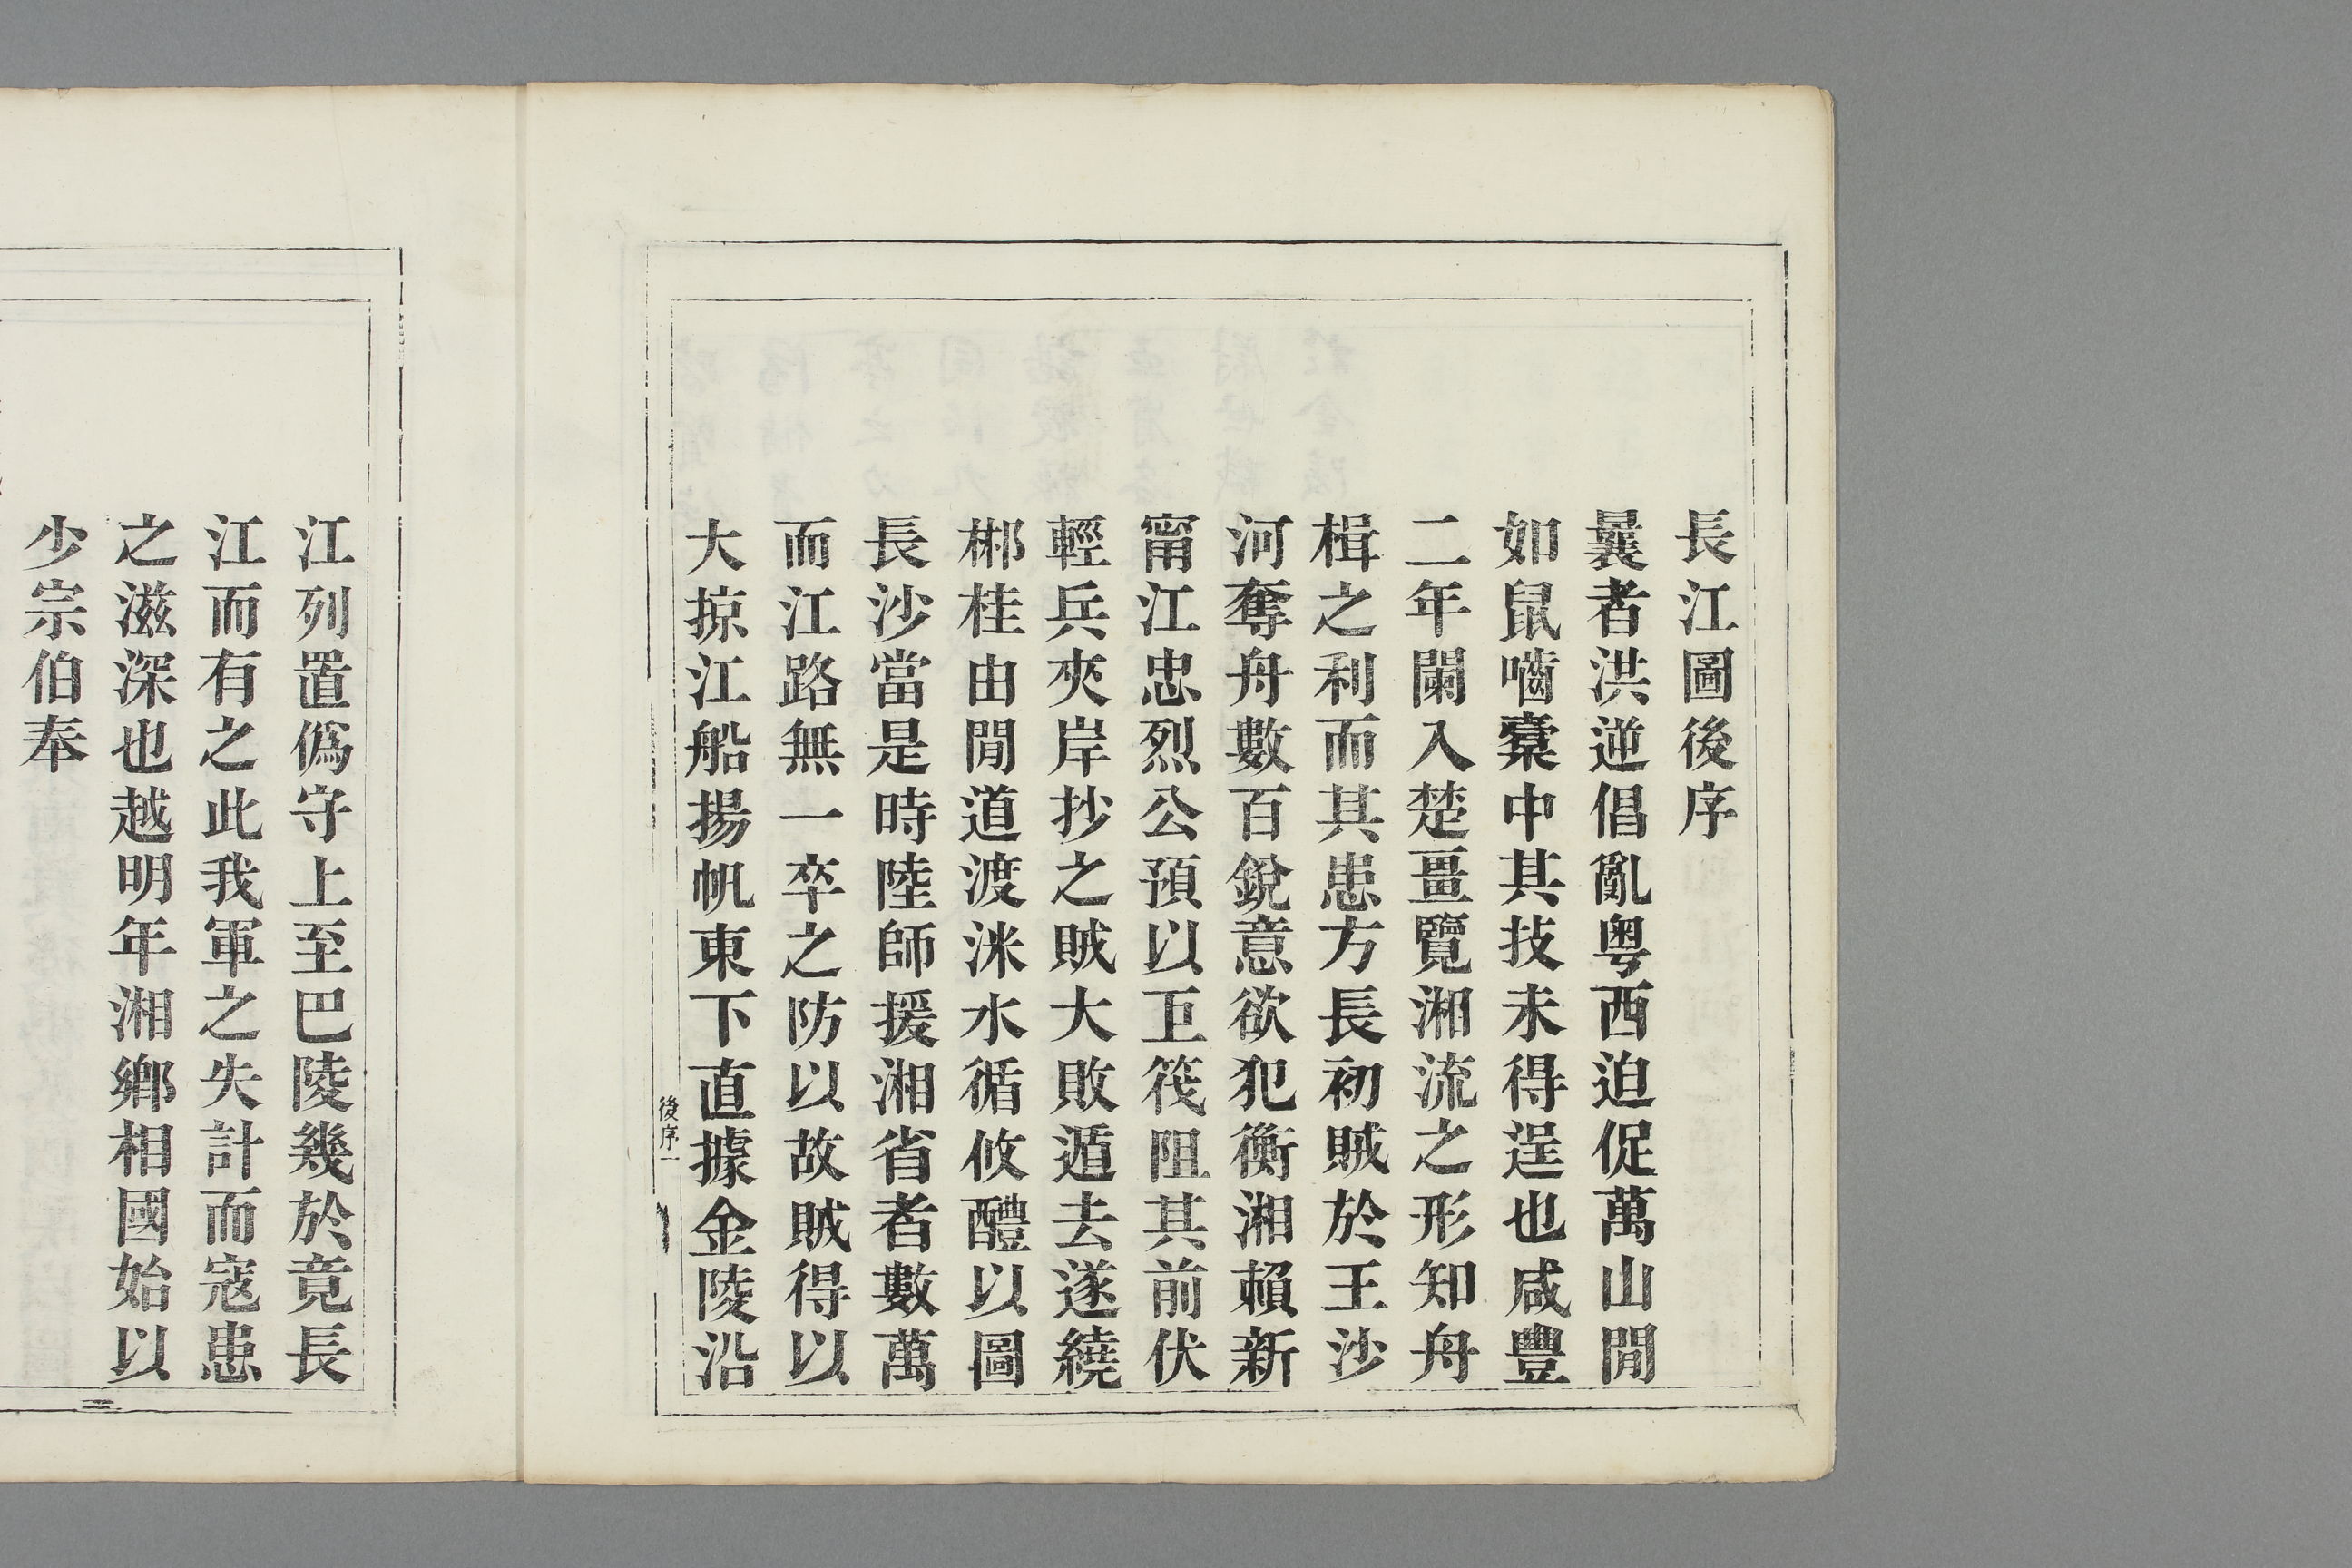 長江圖後序
曩者洪逆倡亂粤西迫促萬山閒
如鼠嚙橐中其技未得逞也咸豐
二年闌入楚畺覽湘流之形知舟
楫之利而其患方長初賊於王沙
河奪舟數百銳意欲犯衡湘賴新
甯江忠烈公預以匥筏阻其前伏
輕兵夾岸抄之賊大敗遁去遂繞
郴桂由閒道渡洣水循攸醴以圖
長沙當是時陸師援湘省者數萬
而江路無一卒之防以故賊得以
大掠江船揚帆東下直據金陵沿
後序一
江列置僞守上至巴陵幾於竟長
江而有之此我軍之失計而寇患
之滋深也越明年湘鄕相國始以
少宗伯奉